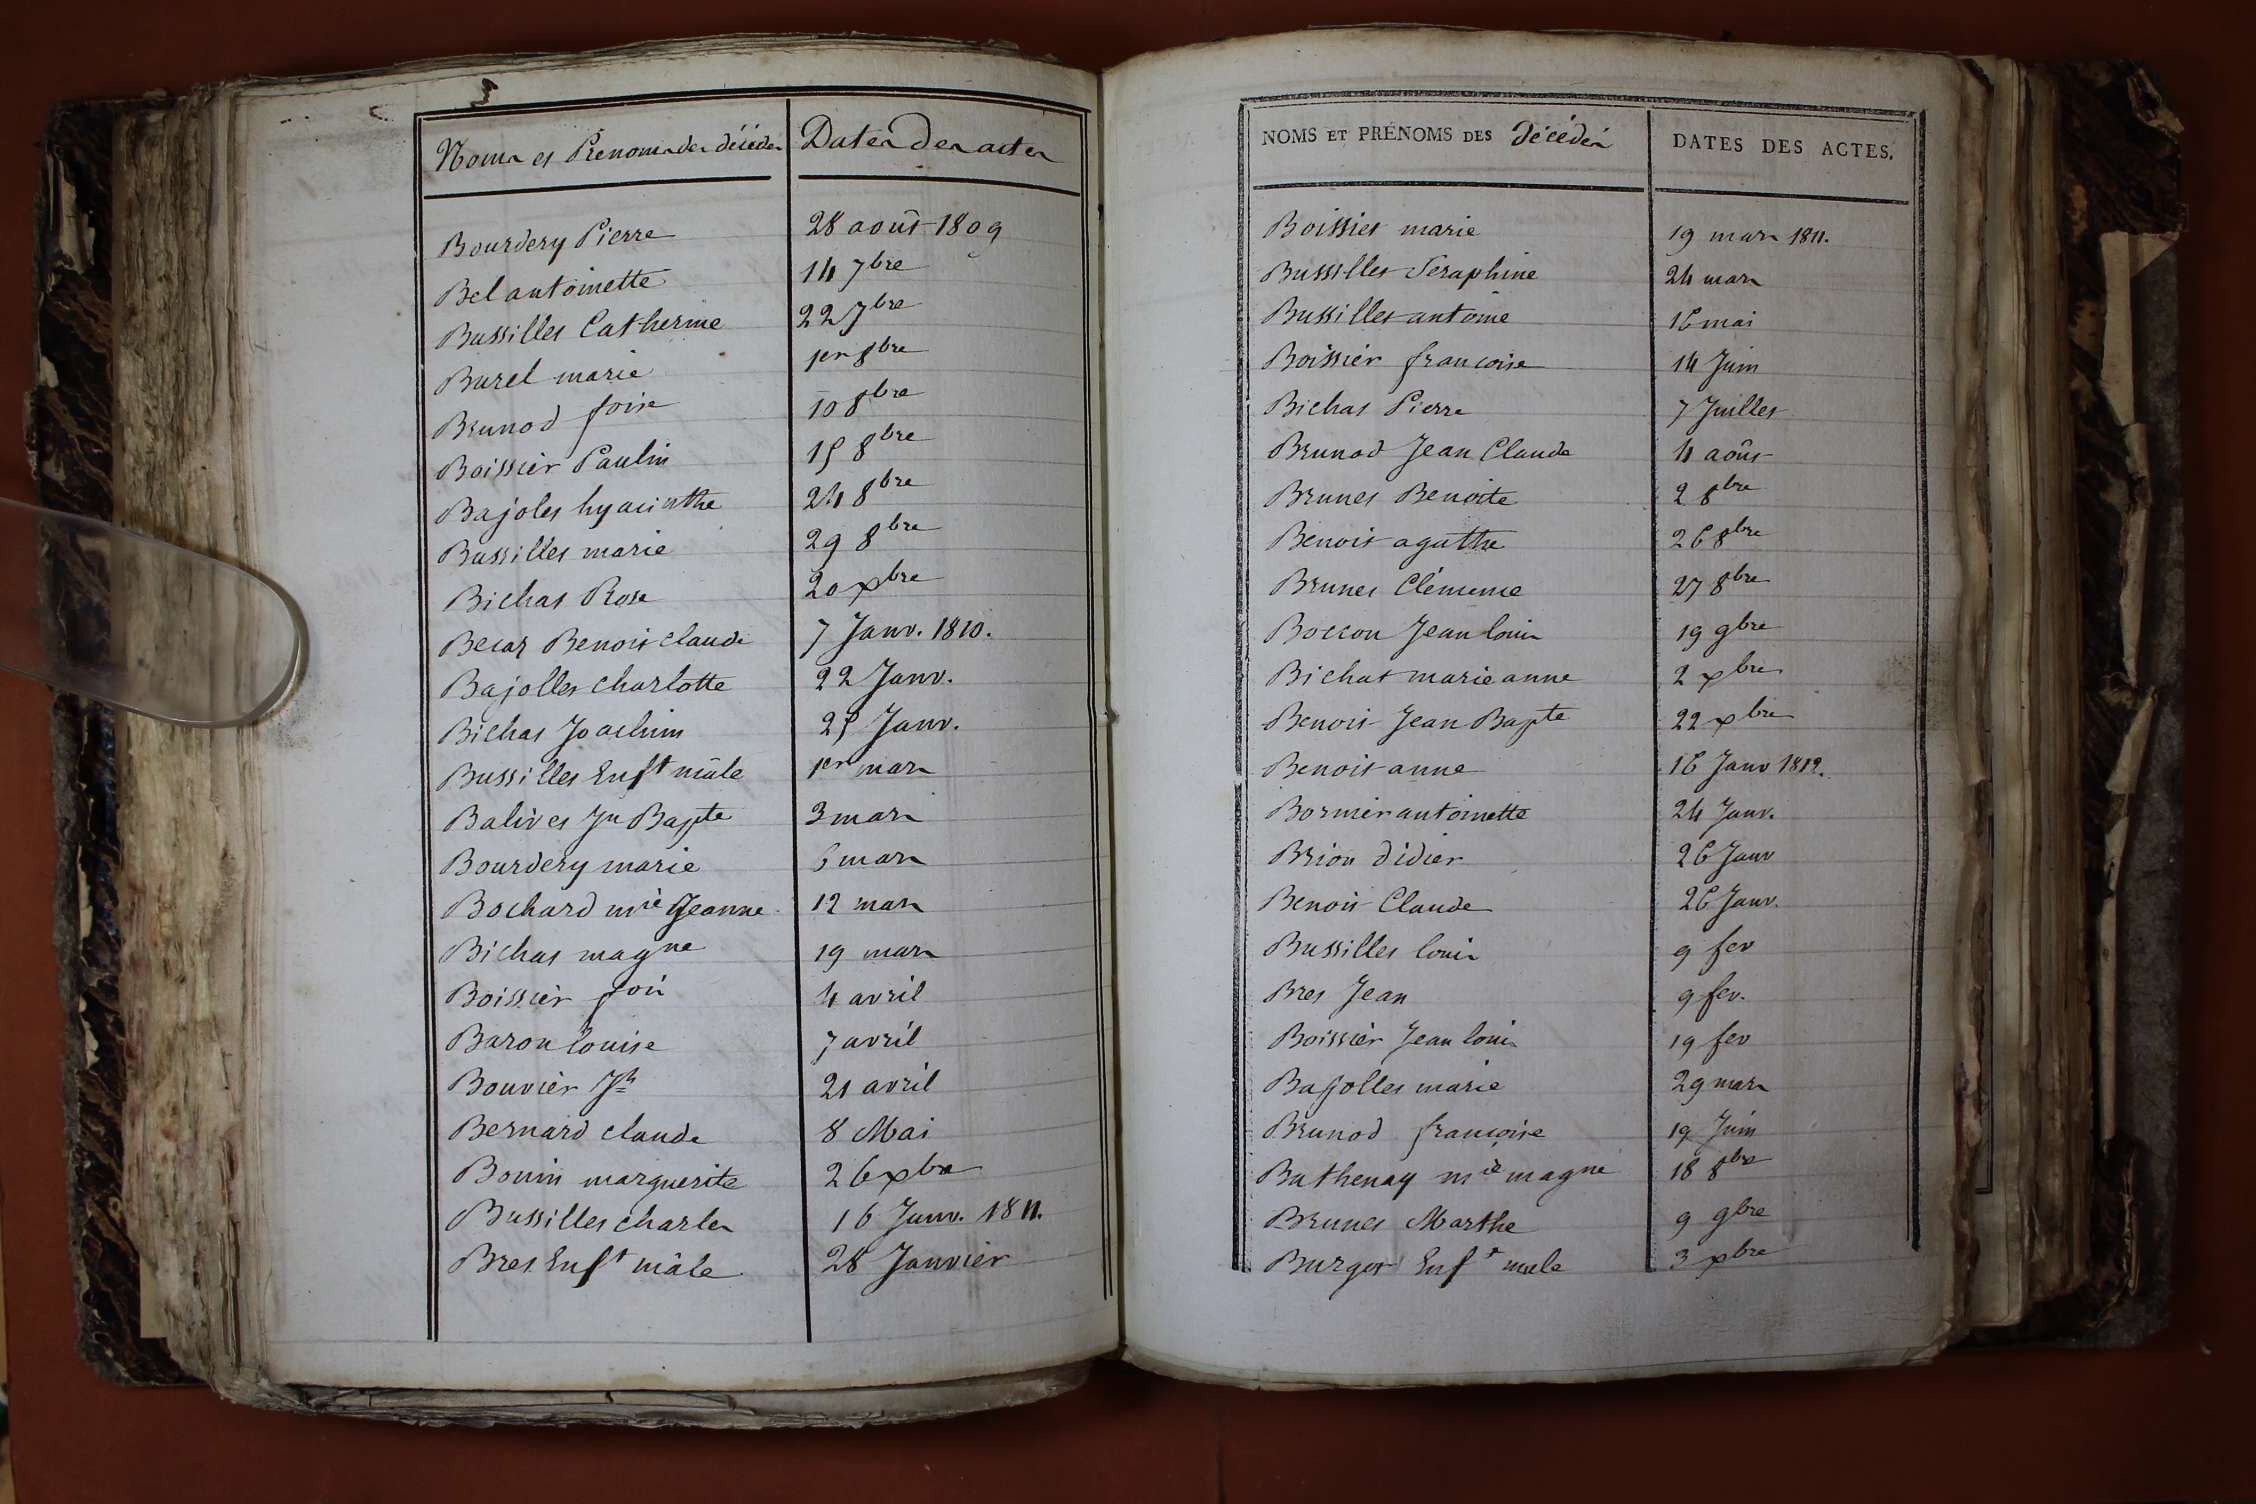 Noms et Prenoms des décédés | Dates des actes
Bourdery Pierre | 28 août 1809
Bel antoinette | 14 7bre
Bussilles Catherine | 22 7bre
Burel marie | 1er 8bre
Brunod foise | 10 8bre
Boissier Paulin | 15 8bre
Bajoles hyacinthe | 24 8bre
Bussilles marie | 29 8bre
Bichat Rose | 20 xbre
Becaz Benoit claude | 7 Janv. 1810.
Bajolles charlotte | 22 Janv.
Bichat Joachim | 25 Janv.
Bussilles Enft mâle | 1er mars
Balives Jn Bapte | 3 mars
Bourdery marie | 6 mars
Bochard mie Jeanne | 12 mars
Bichat magne | 19 mars
Boissier fois | 4 avril
Baron louise | 7 avril
Bouvier Jh | 21 avril
Bernard claude | 8 Mai
Bonin marguerite | 26 xbre
Bussilles charles | 16 Janv. 1811.
Bret Enft mâle | 28 Janvier
NOMS ET PRÉNOMS DES décédés | DATES DES ACTES.
Boissier marie | 19 mars 1811.
Bussilles Seraphine | 24 mars
Bussilles antoine | 16 mai
Boissier francoise | 14 Juin
Bichat Pierre | 7 Juillet
Brunod Jean Claude | 4 août
Brunet Benoite | 2 8bre
Benoit agathe | 26 8bre
Brunet Clémence | 27 8bre
Boccon Jean louis | 19 9bre
Bichat marie anne | 2 xbre
Benoit Jean Bapte | 22 xbre
Benoit anne | 16 Janv 1812.
Bornier antoinette | 24 Janv.
Brion didier | 26 Janv
Benoit Claude | 26 Janv.
Bussilles louis | 9 fev
Bret Jean | 9 fev.
Boissier Jean louis | 19 fev
Bajolles marie | 29 mars
Brunod francoise | 19 Juin
Bathenay mie magne | 18 8bre
Brunet Marthe | 9 9bre
Burgot Enft male | 3 xbre